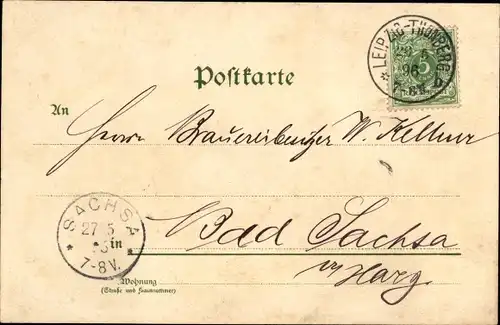 Postkarte
LEIPZIG-THONBERG
5
96
7-8V.
b
An
Herrn Brauereibesitzer W. Kellner
SACHSA
27 5
in
7-8V.
Bad Sachsa
Harz.
Wohnung
(Straße und Hausnummer)